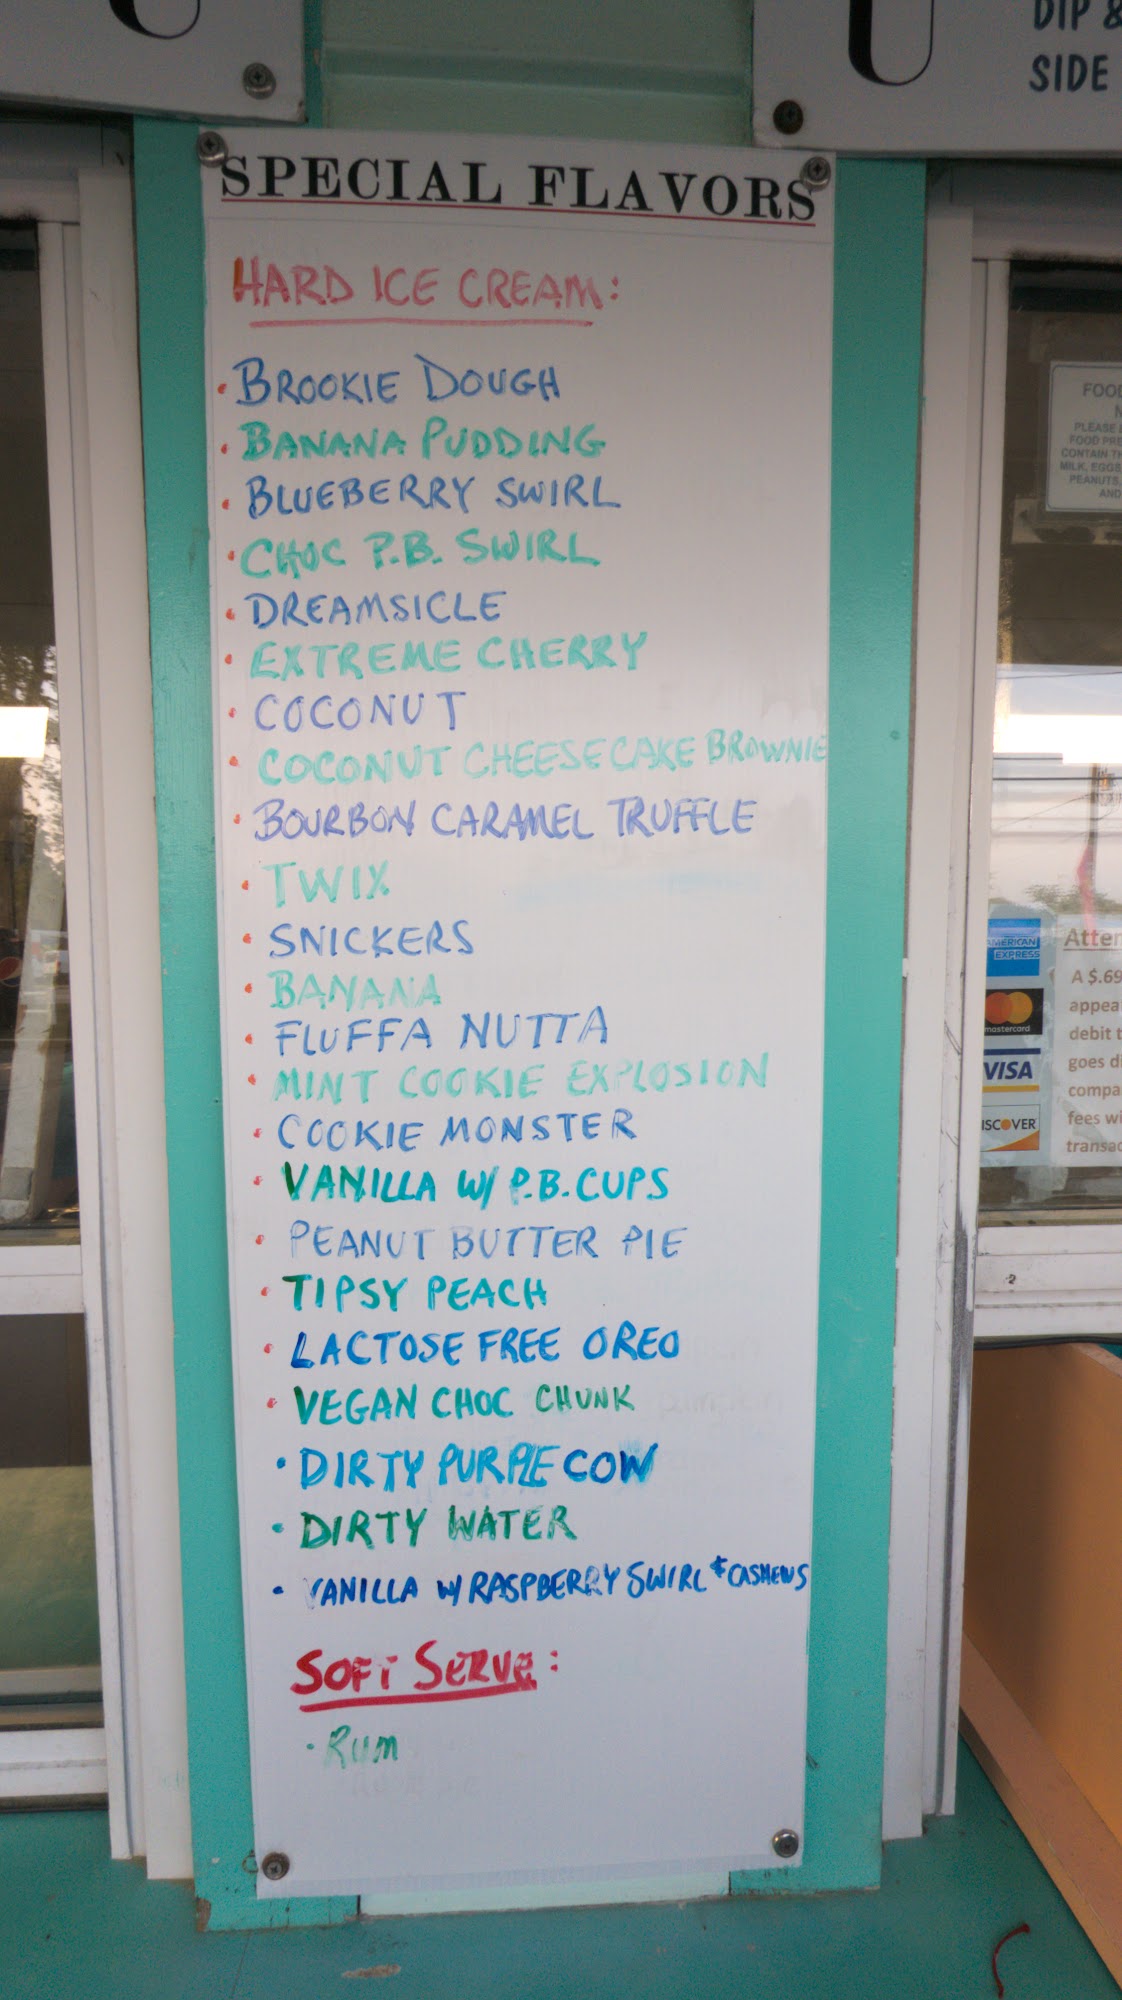 DIP &
SIDE
SPECIAL FLAVORS
HARD ICE CREAM:
• BROOKIE DOUGH
• BANANA PUDDING
• BLUEBERRY SWIRL
• CHOC P.B. SWIRL
• DREAMSICLE
• EXTREME CHERRY
• COCONUT
• COCONUT CHEESECAKE BROWNIE
• BOURBON CARAMEL TRUFFLE
• TWIX
• SNICKERS
• BANANA
• FLUFFA NUTTA
• MINT COOKIE EXPLOSION
• COOKIE MONSTER
• VANILLA W/ P.B. CUPS
• PEANUT BUTTER PIE
• TIPSY PEACH
• LACTOSE FREE OREO
• VEGAN CHOC CHUNK
• DIRTY PURPLE COW
• DIRTY WATER
• VANILLA W/ RASPBERRY SWIRL & CASHEWS
SOFT SERVE:
• RUM
FOOD
PLEASE
FOOD PRE
CONTAIN TH
MILK, EGGS
PEANUTS,
AND
AMERICAN
EXPRESS
mastercard
VISA
DISCOVER
Atten
A $.69
appea
debit t
goes di
compa
fees wi
transac